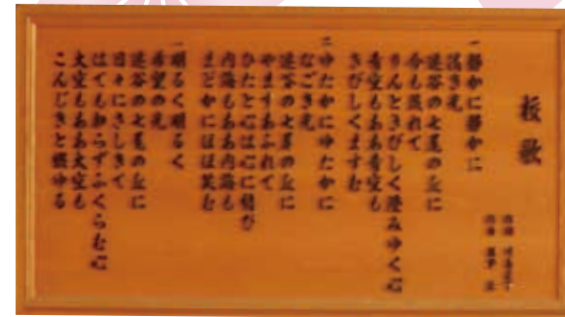 校歌
一 静かに静かに
清き光
迷谷の七星の丘に
今も流れて
りんときびしく澄みゆく心
青空もああ青空も
きびしくますむ
二 ゆたかにゆたかに
なごき光
迷谷の七星の丘に
やまずあふれて
ひたと心は心に結び
内海もああ内海も
まどかにほほ笑む
一 明るく明るく
希望の光
迷谷の七星の丘に
日々にさしきて
はても知らずふくらむ心
大空もああ大空も
こんじきと映ゆる